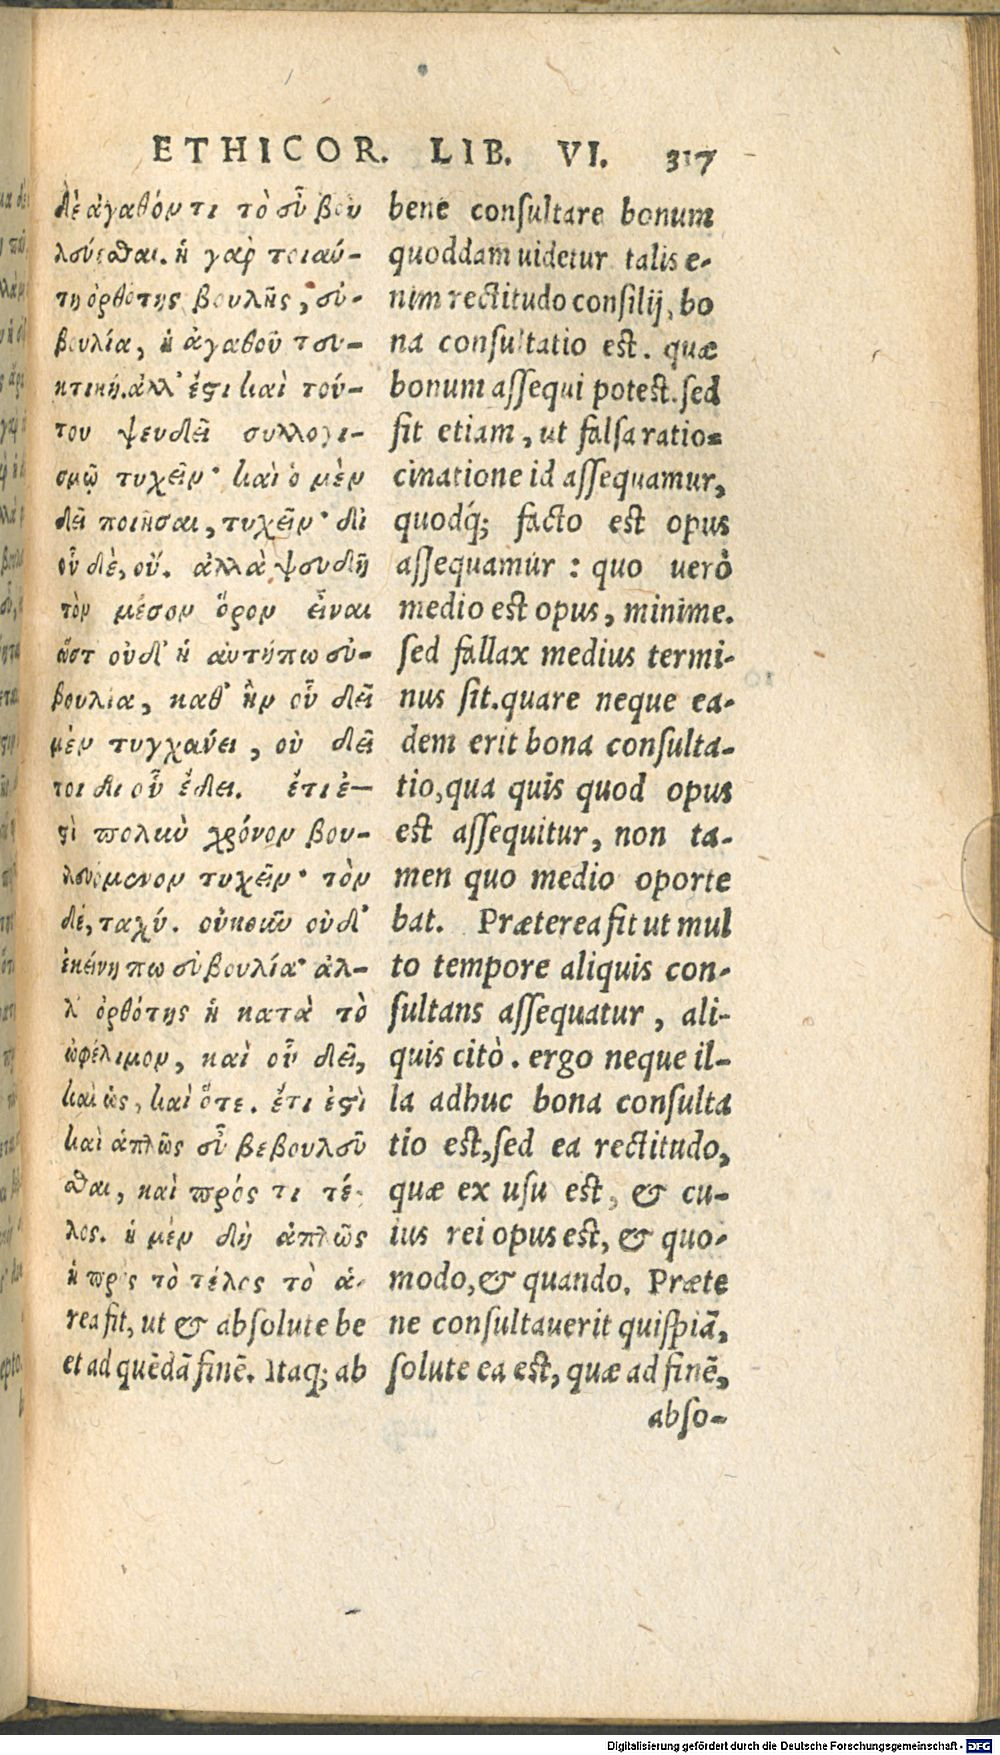 ETHICOR. LIB. VI. 317
δὲ ἀγαθόν τι τὸ εὖ βου
λεύεσθαι. ἡ γὰρ τοιαύ-
τη ὀρθότης βουλῆς, εὐ-
βουλία, ἡ ἀγαθοῦ τευ-
κτική. ἀλλ' ἔστι καὶ τού-
του ψευδεῖ συλλογι-
σμῷ τυχεῖν· καὶ ὁ μὲν
δεῖ ποιῆσαι, τυχεῖν· δι
οὗ δὲ, οὔ. ἀλλὰ ψευδῆ
τὸν μέσον ὅρον εἶναι
ὥστ οὐδ' ἡ αὐτή πω εὐ-
βουλία, καθ' ἣν οὗ δεῖ
μὲν τυγχάνει, οὐ δεῖ
τοι δι οὗ ἔδει. ἔτι ἐ-
στὶ πολλὺ χρόνον βου-
λευόμενον τυχεῖν· τὸν
δέ, ταχύ. οὐκοῦν οὐδ'
ἐκείνη πω εὐβουλία· ἀλ-
λ' ὀρθότης ἡ κατὰ τὸ
ὠφέλιμον, καὶ οὗ δεῖ,
καὶ ὡς, καὶ ὅτε. ἔτι ἐστὶ
καὶ ἁπλῶς εὖ βεβουλεῦ
σθαι, καὶ πρός τι τέ-
λος. ἡ μὲν δὴ ἁπλῶς
ἡ πρὸς τὸ τέλος τὸ ἁ-
bene consultare bonum
quoddam uidetur talis e-
nim rectitudo consilij, bo
na consultatio est. quæ
bonum assequi potest. sed
fit etiam, ut falsa ratio=
cinatione id assequamur,
quodq́; facto est opus
assequamur: quo uerò
medio est opus, minime.
sed fallax medius termi-
nus sit. quare neque ea-
dem erit bona consulta-
tio, qua quis quod opus
est assequitur, non ta-
men quo medio oporte
bat. Præterea fit ut mul
to tempore aliquis con-
sultans assequatur, ali-
quis citò. ergo neque il-
la adhuc bona consulta
tio est, sed ea rectitudo,
quæ ex usu est, & cu-
ius rei opus est, & quo-
modo, & quando. Præte
rea fit, ut & absolute be ne consultauerit quispiã,
et ad quẽdã finẽ. Itaq; ab solute ea est, quæ ad finẽ,
abso-
Digitalisierung gefördert durch die Deutsche Forschungsgemeinschaft - DFG